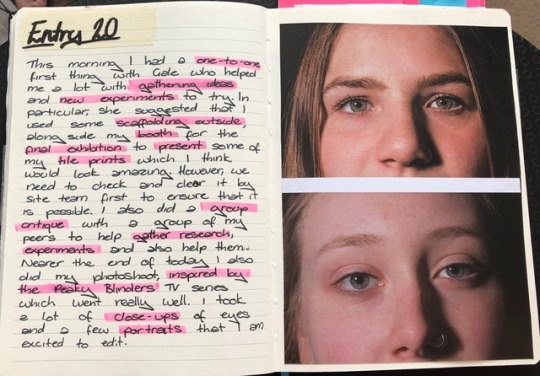 Entry 20
This morning I had a one-to-one
first thing with Gale who helped
me a lot with gathering ideas
and new experiments to try. In
particular, she suggested that I
used some scaffolding outside,
along side my booth for the
final exhibition to present some of
my tile prints which I think
would look amazing. However, we
need to check and clear it by
site team first to ensure that it
is possible. I also did a group
critique with a group of my
peers to help gather research,
experiments and also help them.
Nearer the end of today I also
did my photoshoot, inspired by
the Peaky Blinders TV series
which went really well. I took
a lot of close-ups of eyes
and a few portraits that I am
excited to edit.